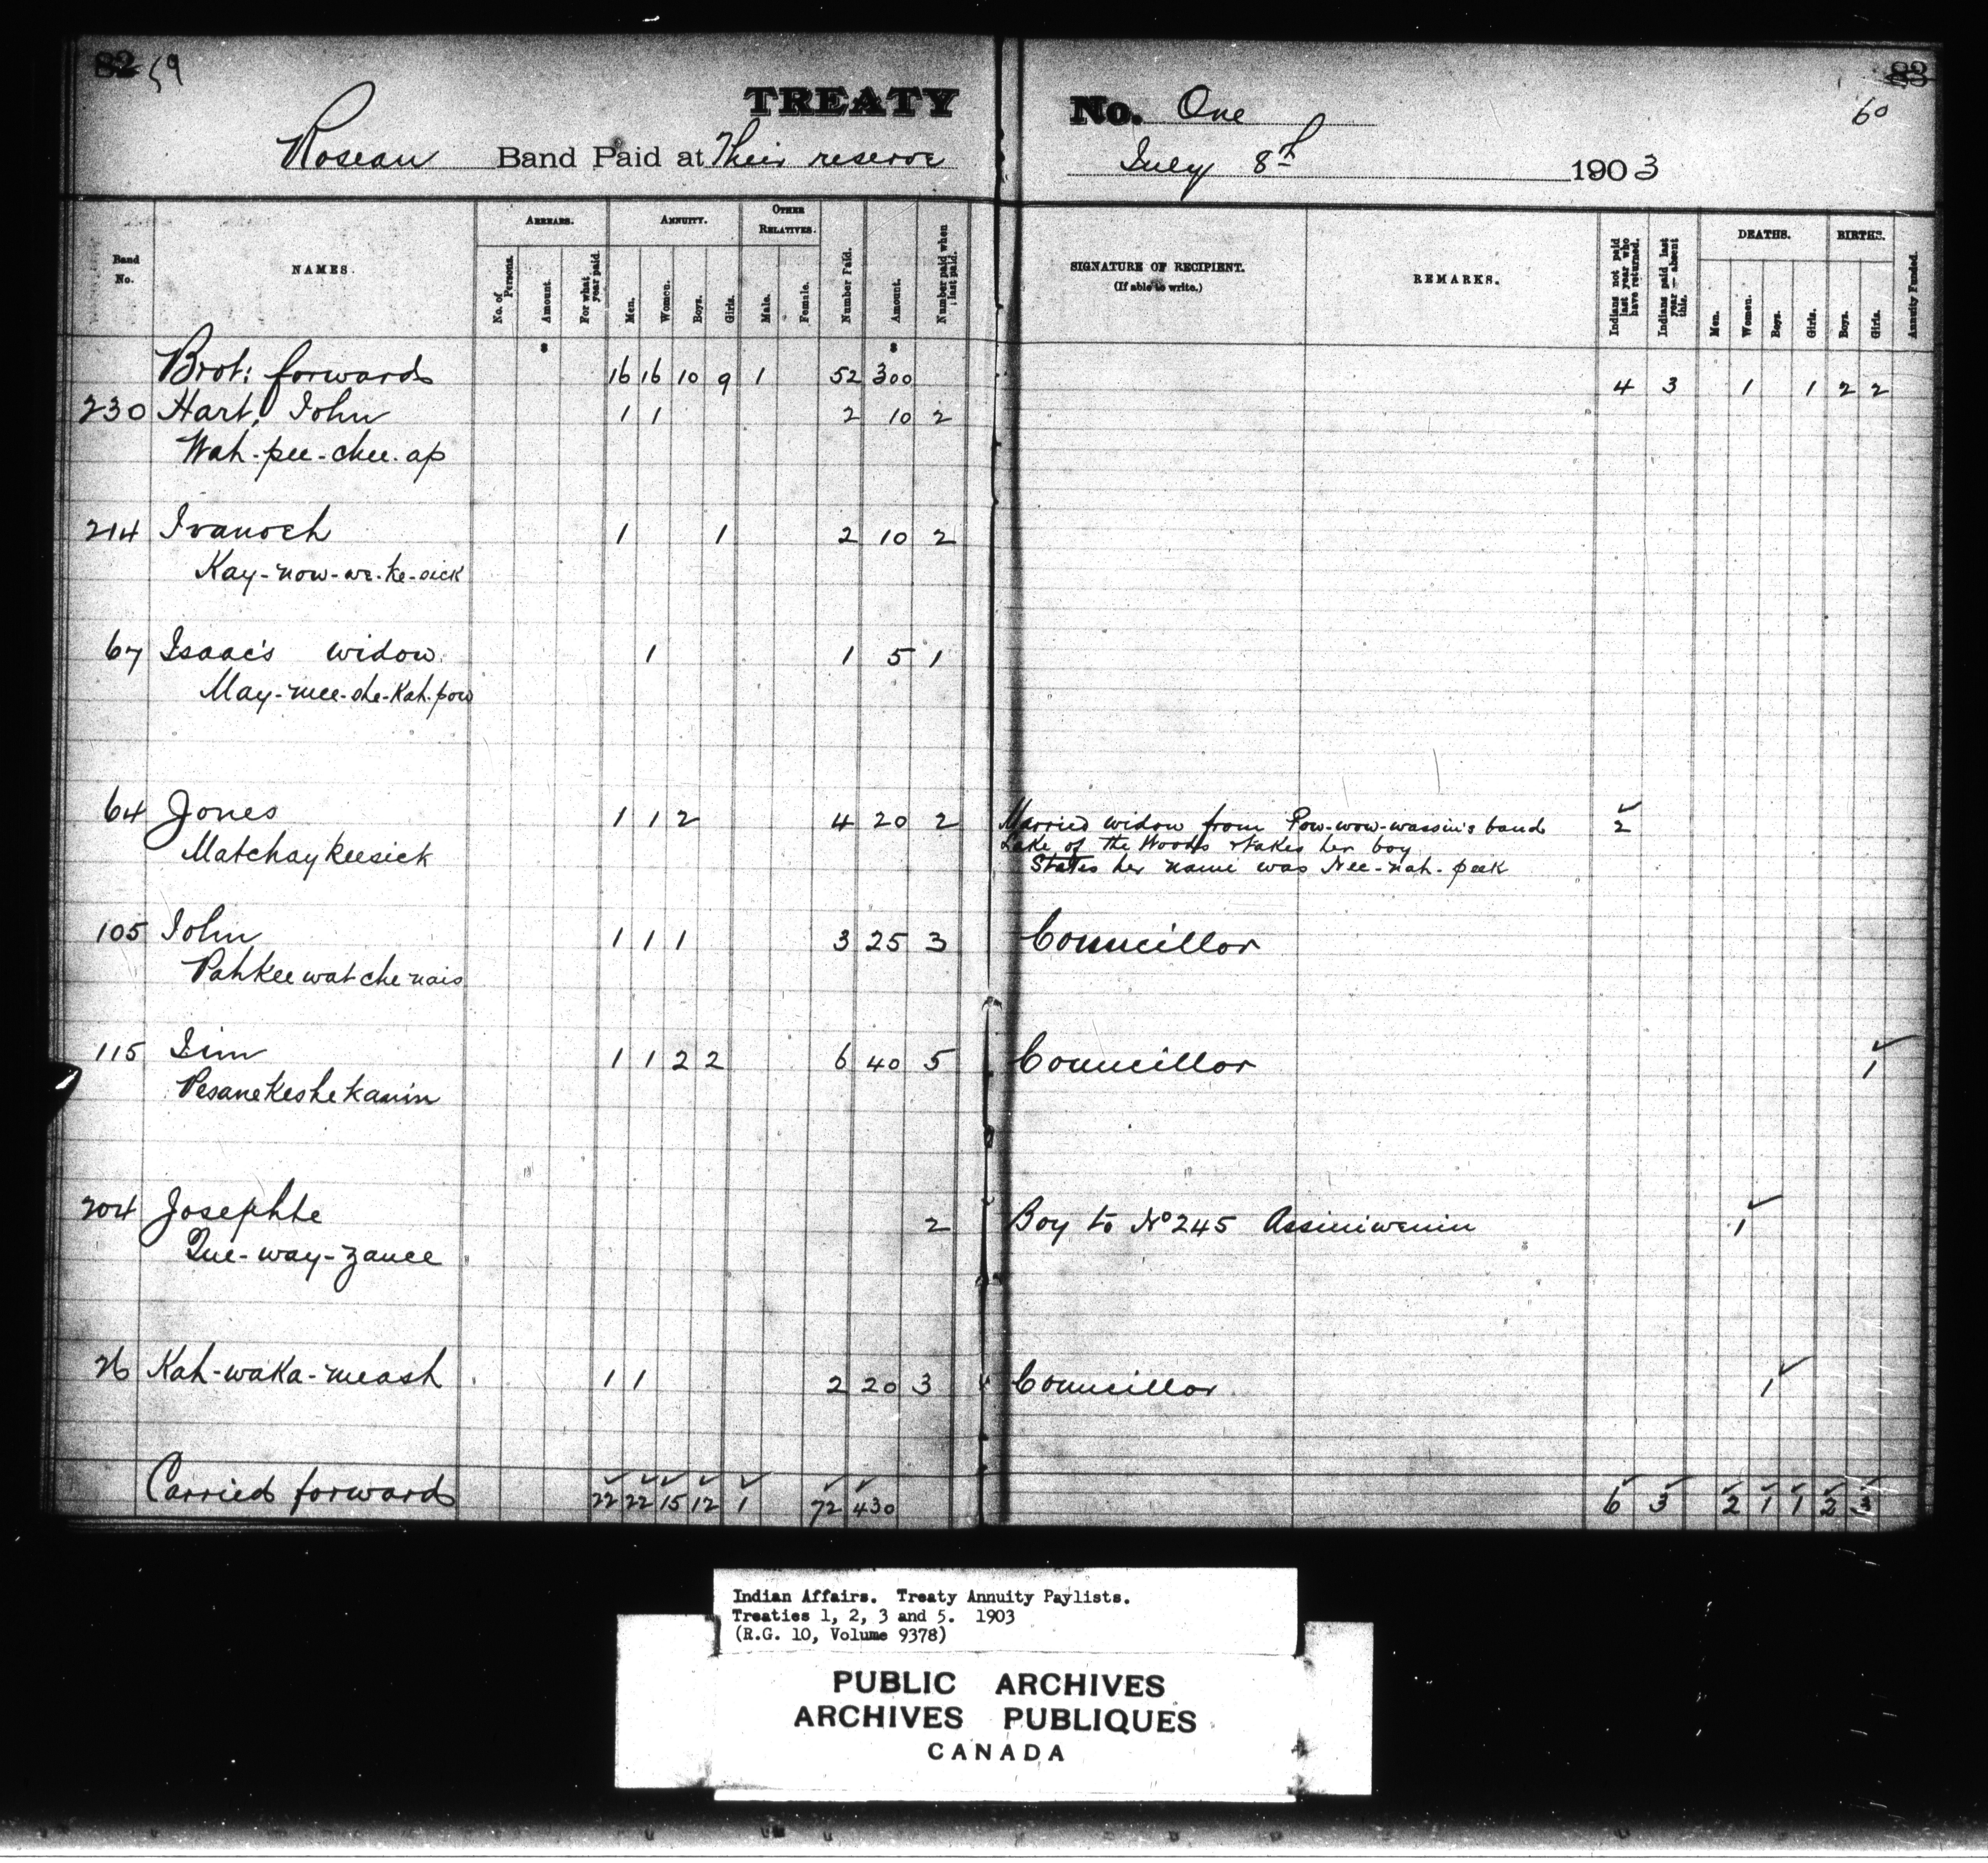 82 59
TREATY No. One
83
60
Roseau Band Paid at Their reserve July 8th 1903
Band No.
NAMES.
ARREARS.
No. of Persons.
Amount.
For what year paid.
ANNUITY.
Men.
Women.
Boys.
Girls.
OTHER RELATIVES.
Male.
Female.
Number Paid.
Amount.
Number paid when last paid.
SIGNATURE OF RECIPIENT.
(If able to write.)
REMARKS.
Indians not paid last year who have returned.
Indians paid last year — absent this.
DEATHS.
Men.
Women.
Boys.
Girls.
BIRTHS.
Boys.
Girls.
Annuity Funded.
$ $
Brot: forwards 16 16 10 9 1 52 300 4 3 1 1 2 2
230 Hart, John 1 1 2 10 2
Wah-pee-chee-ap
214 Ivanoch 1 1 2 10 2
Kay-now-we-ke-sick
67 Isaac's widow 1 1 5 1
May-mee-she-Kah-pow
64 Jones 1 1 2 4 20 2 Married widow from Pow-wow-wassin's band 2
Lake of the Woods & takes her boy
Matchaykeesick States her name was Nee-nah-peek
105 John 1 1 1 3 25 3 Councillor
Pahkeewatchenais
115 Jim 1 1 2 2 6 40 5 Councillor 1
Pesanekeshekanin
204 Josephte 2 Boy to No 245 Assiniwenin 1
Que-way-zance
26 Kah-waka-meash 1 1 2 20 3 Councillor 1
Carried forwards 22 22 15 12 1 72 430 6 3 2 1 1 2 3
Indian Affairs. Treaty Annuity Paylists.
Treaties 1, 2, 3 and 5. 1903
(R.G. 10, Volume 9378)
PUBLIC ARCHIVES
ARCHIVES PUBLIQUES
CANADA